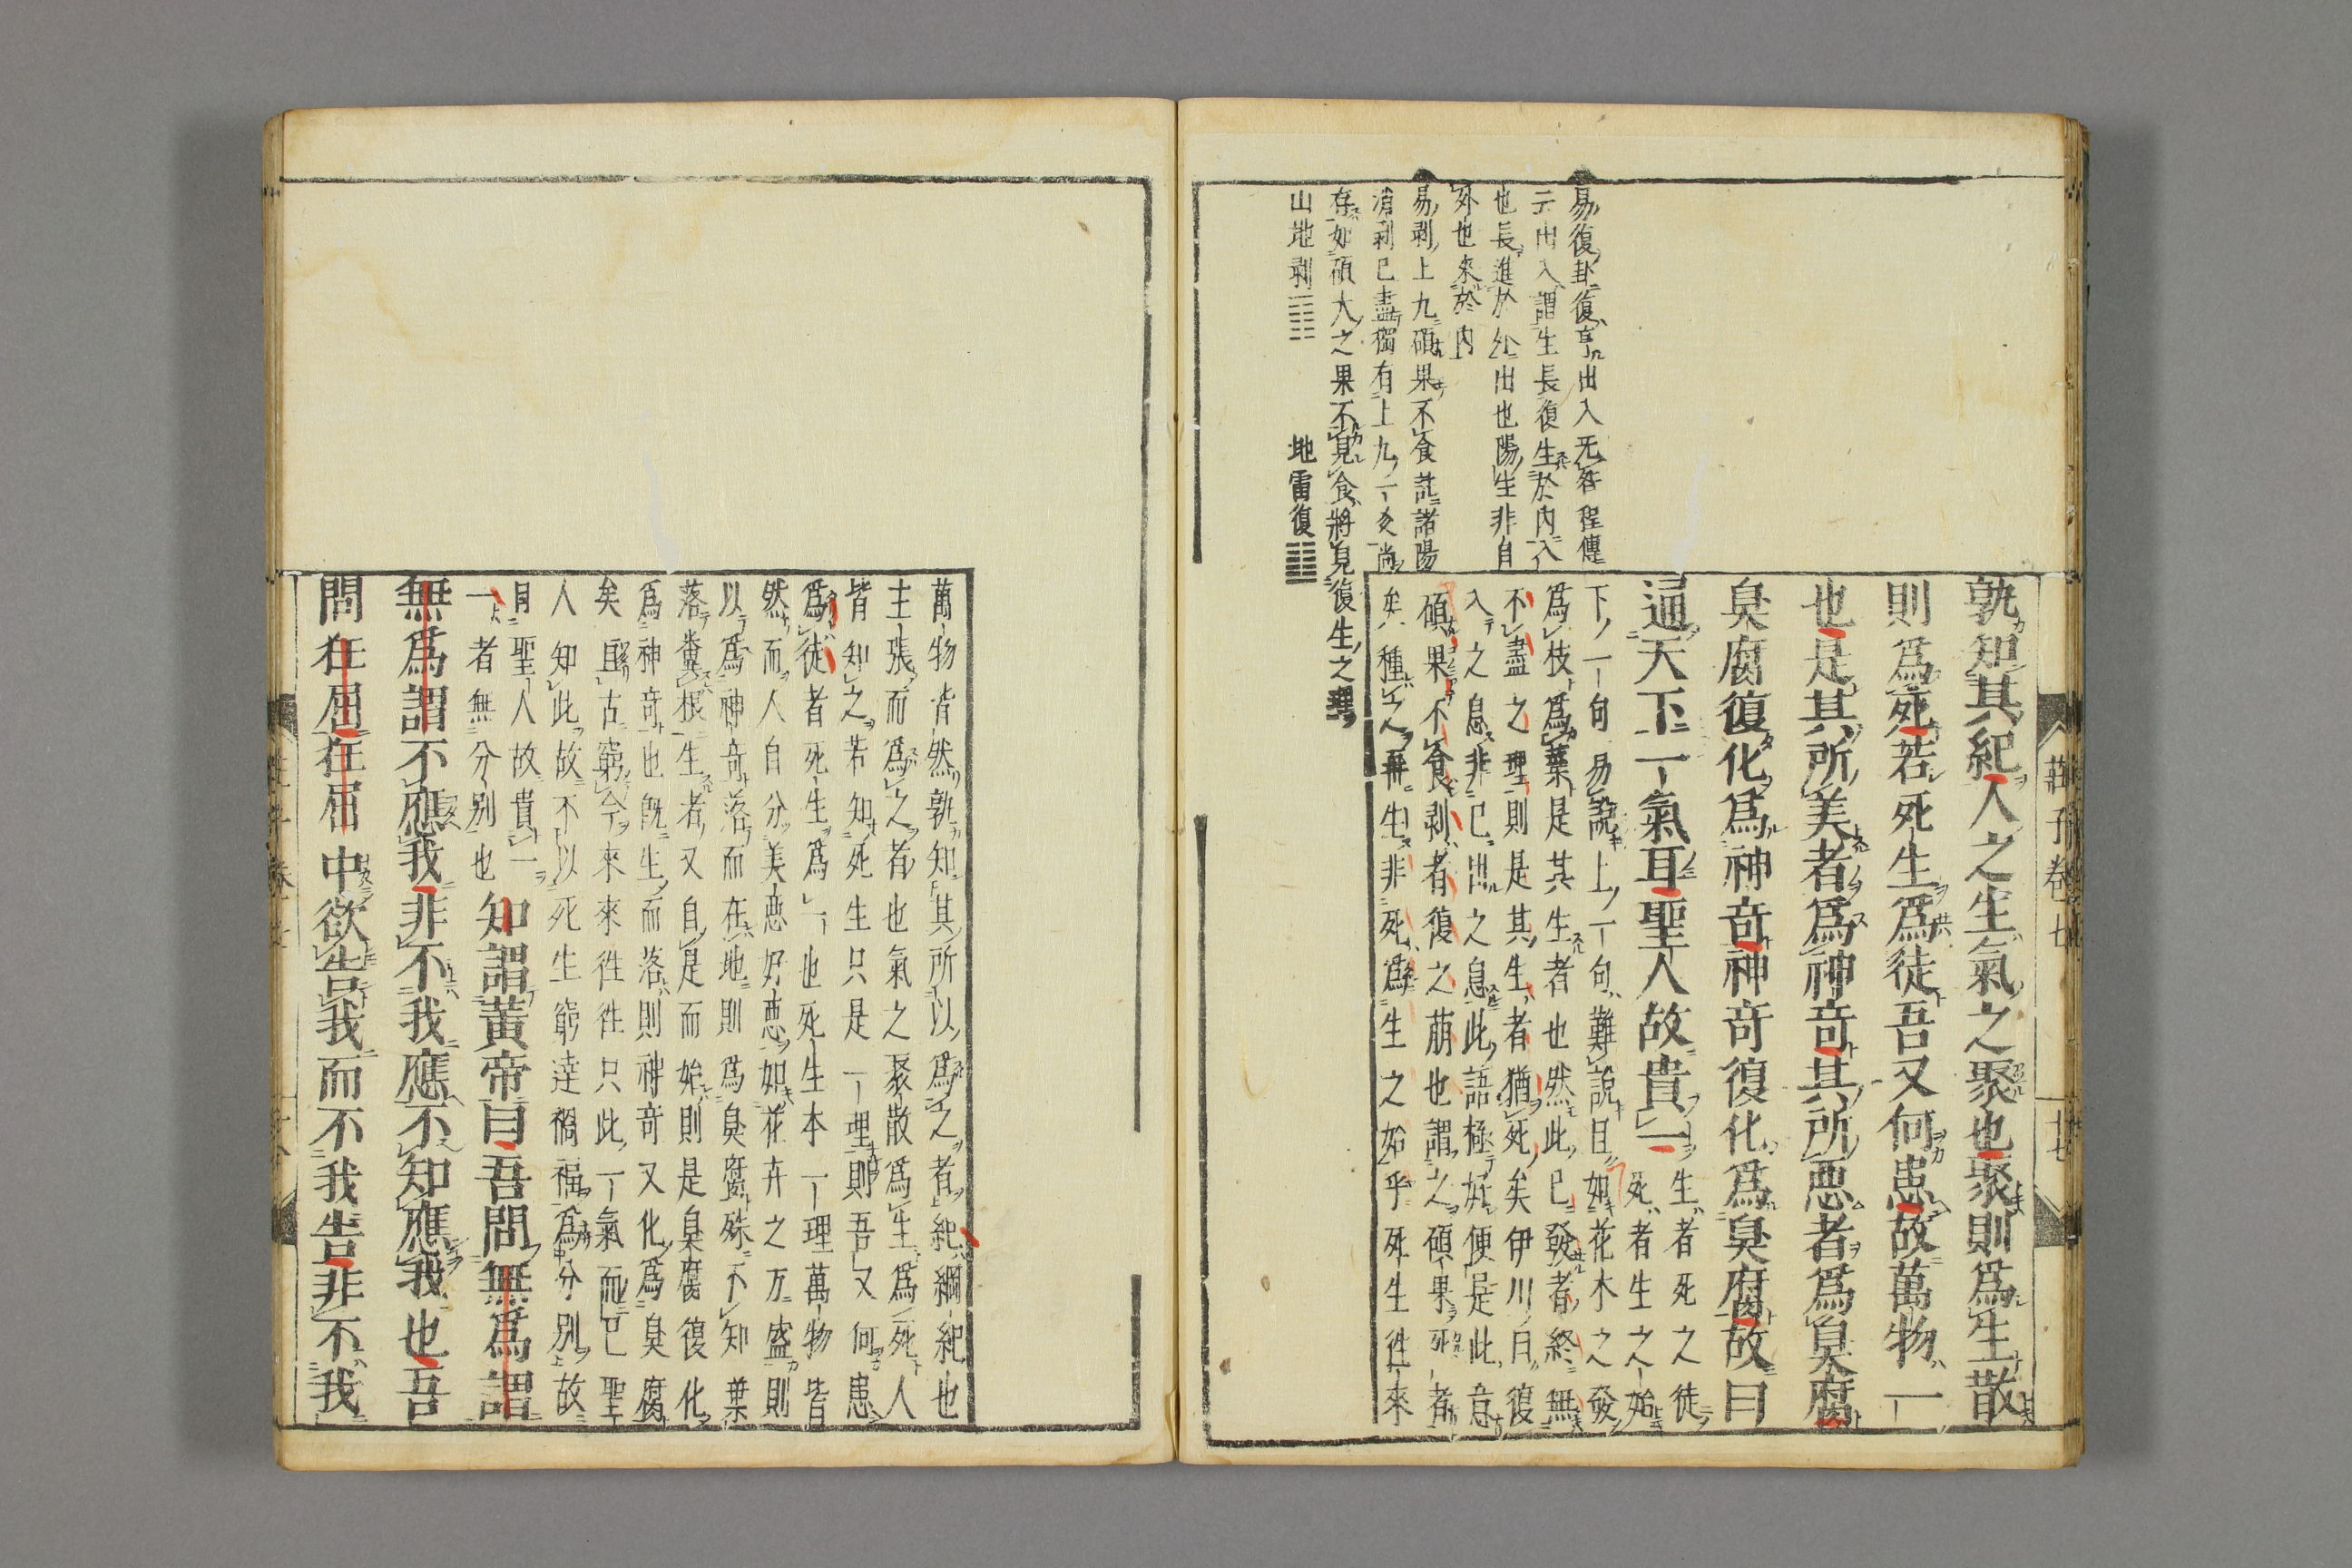 易復卦復亨出入无咎程傳
云出入謂生長復生於内入
也長進於外出也陽生非自
外也來於内
易剥上九碩果不食註諸陽
消剥已盡獨有上九一爻尚
存如碩大之果不見食將見復生之理
山地剥 地雷復
孰知其紀人之生氣之聚也聚則爲生散
則爲死若死生爲徒吾又何患故萬物一
也是其所美者爲神奇其所惡者爲臭腐
臭腐復化爲神奇神奇復化爲臭腐故曰
通天下一氣耳聖人故貴一生者死之徒
死者生之始
下一句易説上一句難説且如花木之發
爲枝爲葉是其生者也然此已發者終無
不盡之理則是其生者猶死矣伊川曰復
入之息非已出之息此語極好便是此意
碩果不食剥者復之萠也謂之碩果死者
矣種之再生非死爲生之始乎死生往來
莊子卷七 十七
萬物皆然孰知其所以爲之者紀綱紀也
主張而爲之者也氣之聚散爲生爲死人
皆知之若知死生只是一理則吾又何患
爲徒者死生爲一也死生本一理萬物皆
然而人自分美惡好惡如花卉之方盛則
以爲神奇落而在地則爲臭腐殊不知葉
落糞根生者又自是而始則是臭腐復化
爲神奇也既生而落則神奇又化爲臭腐
矣亘古窮今來來往往只此一氣而已聖
人知此故不以死生窮達禍福爲分別故
曰聖人故貴一
一者無分別也 知謂黃帝曰吾問無爲謂
無爲謂不應我非不我應不知應我也吾
問狂屈狂屈中欲告我而不我告非不我